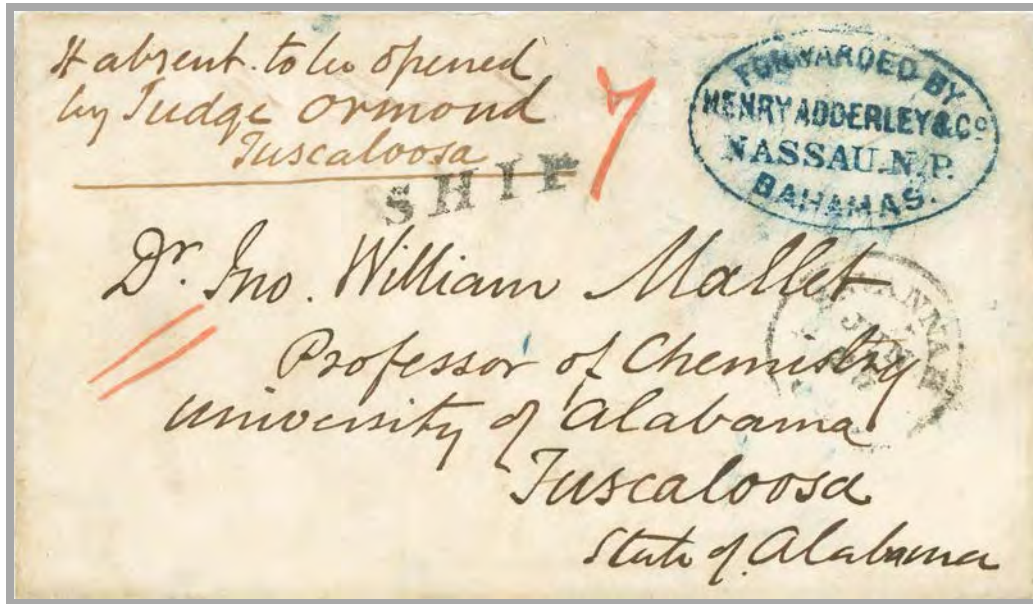 If absent. to be opened
by Judge Ormond
Tuscaloosa
7
FORWARDED BY
HENRY ADDERLEY & Co
NASSAU. N.P.
BAHAMAS.
SHIP
Dr. Jno. William Mallet
Professor of Chemistry
University of Alabama
Tuscaloosa
State of Alabama